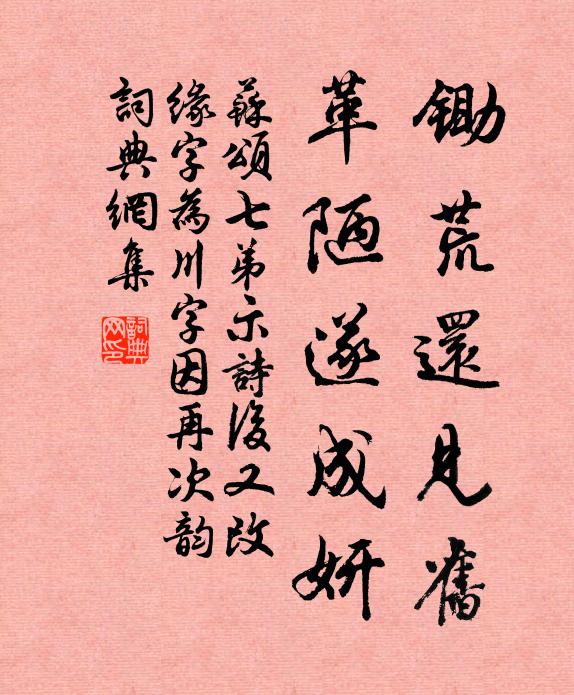 鋤荒還見舊
革陋遂成妍
蘇頌七弟示詩後又改
緣字為川字因再次韵
詞典網集
詞典网印